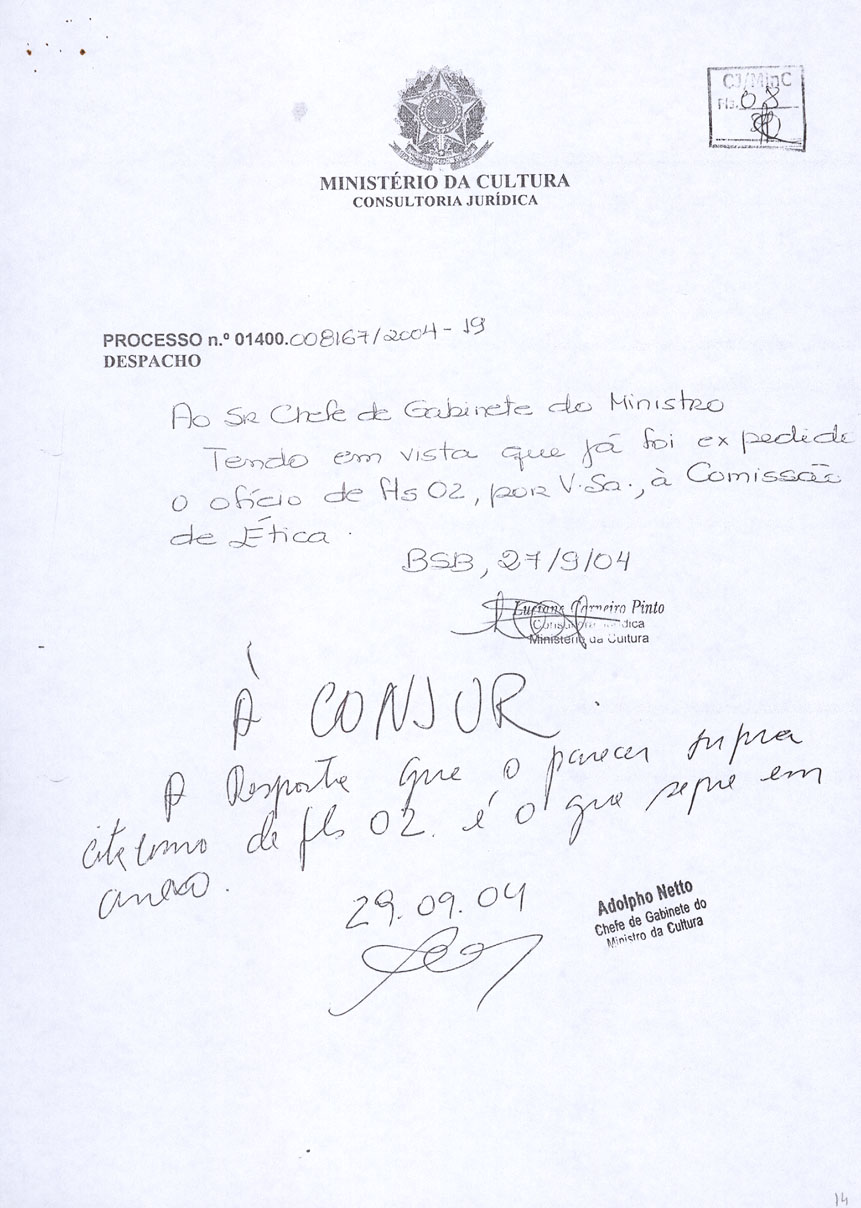 CJ/MinC
Fls. 08
MINISTÉRIO DA CULTURA
CONSULTORIA JURÍDICA
PROCESSO n.º 01400.008167/2004-19
DESPACHO
Ao Sr Chefe de Gabinete do Ministro
Tendo em vista que já foi expedido
o ofício de fls 02, por V.Sa., à Comissão
de Ética.
BSB, 27/9/04
Luciana Carneiro Pinto
Consultora Jurídica
Ministério da Cultura
À CONJUR.
A Resposta que o parecer supra
de fls 02. é o que segue em
anexo.
29.09.04
Adolpho Netto
Chefe de Gabinete do
Ministro da Cultura
14